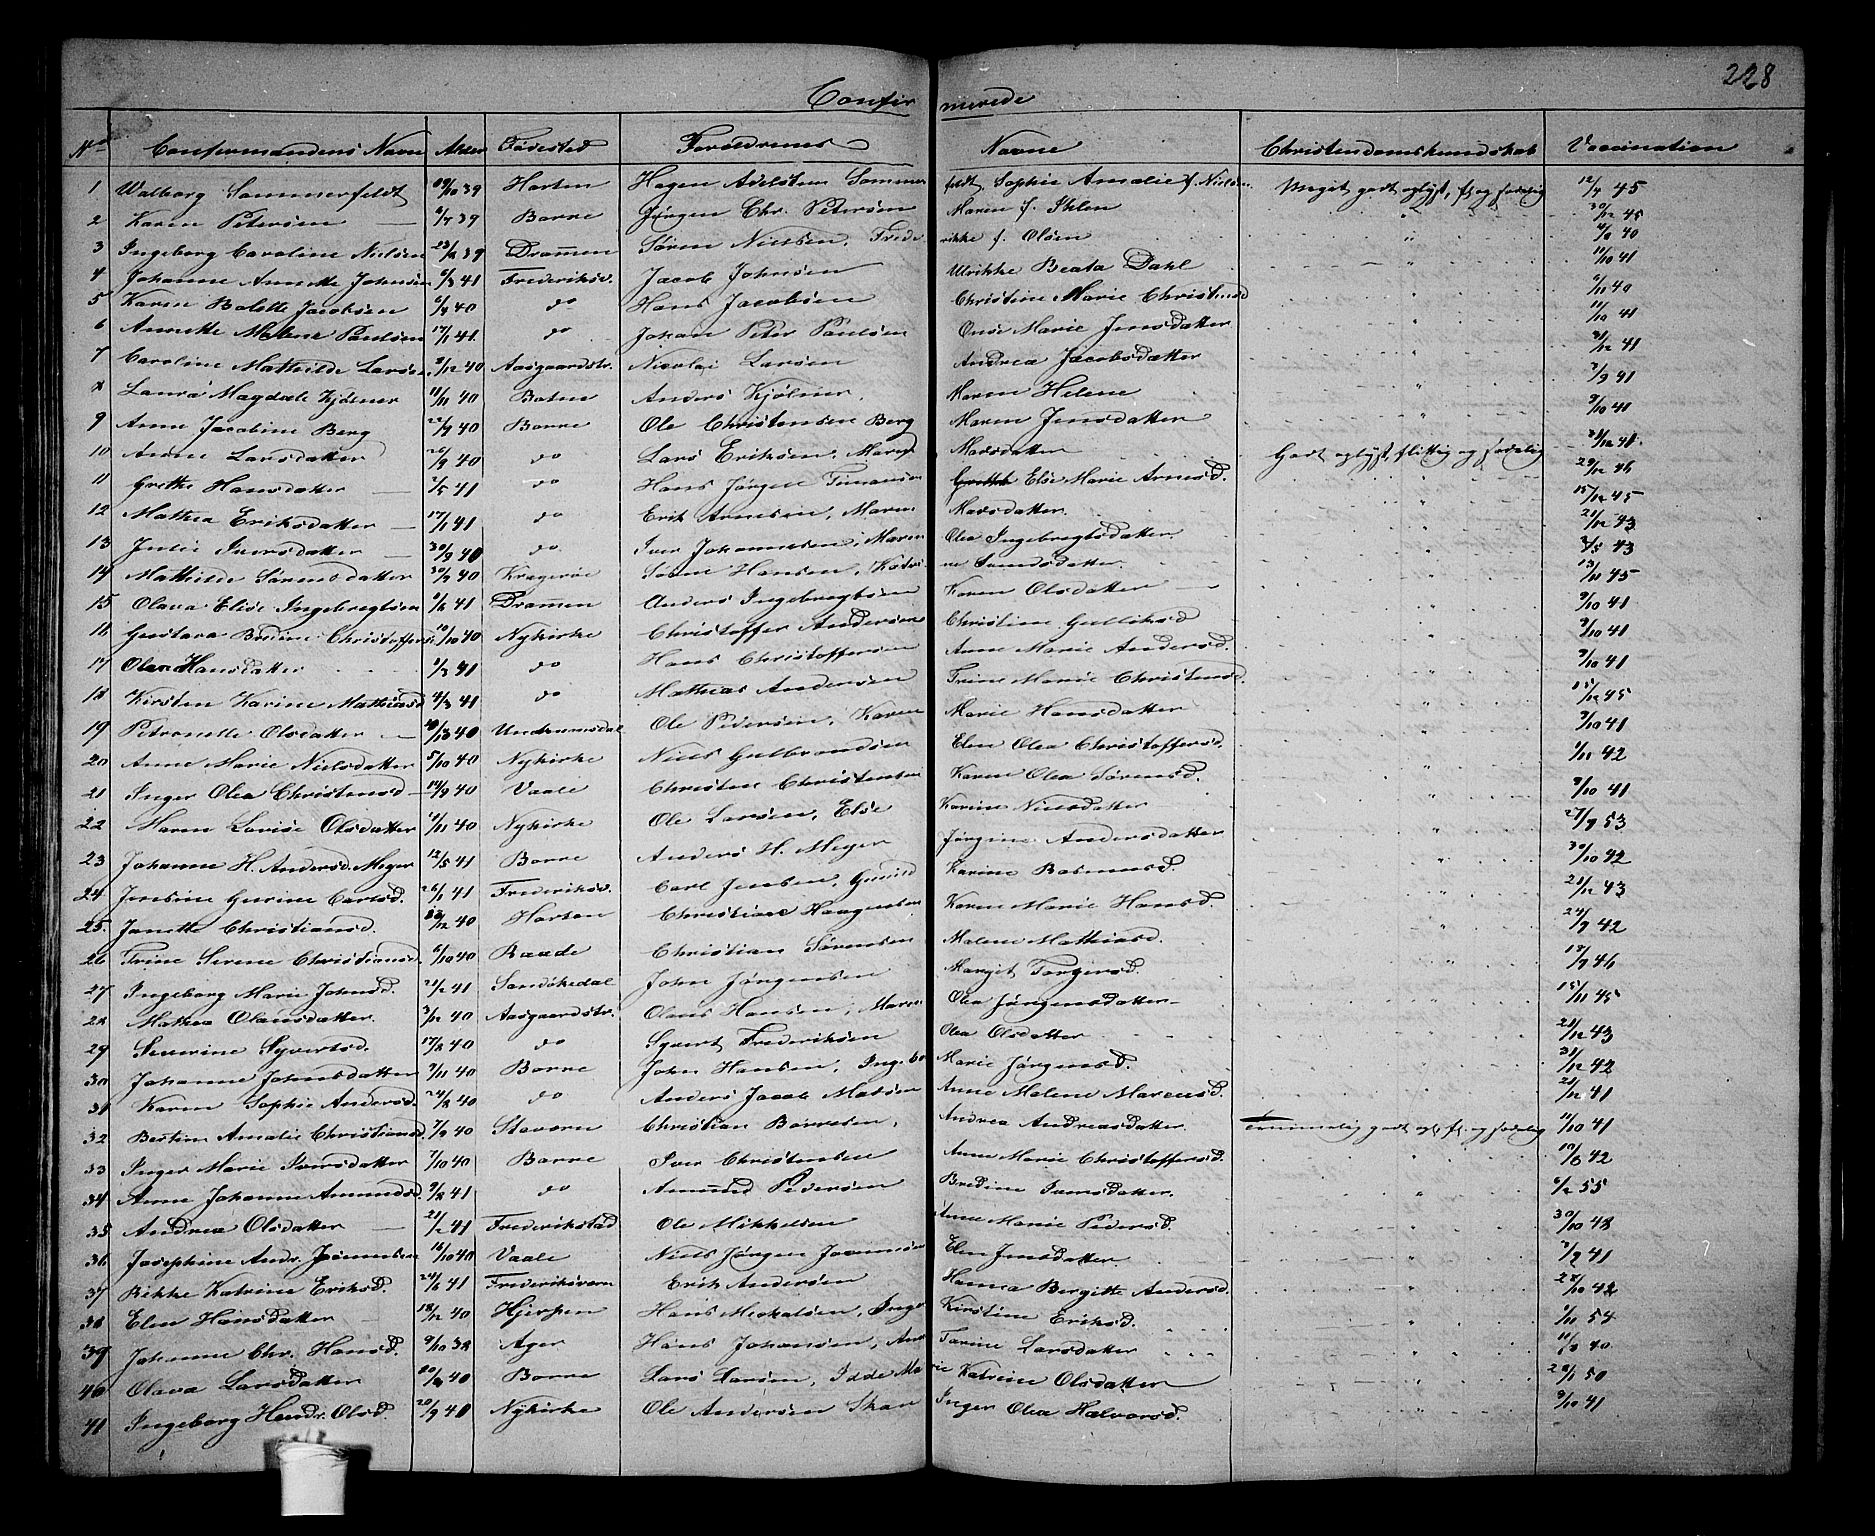 228
Confirmerede
No Confirmandens Navn Alder Fødested Forældrenes Navne Christendomskundskab Vaccination
1 Walborg Sommerfeldt 10/10 39 Horten Hagen Adelsteen Sommerfeldt, Sophie Amalie f. Nielsen Meget godt oplyst, fl. og sædelig 12/7 45
2 Karen Petersen 39 Borre Jørgen Chr. Petersen Maren f. Ihlen 30/12 45
3 Ingeborg Caroline Nielsen 39 Drammen Søren Nielsen, Frederikke f. Olsen 40
4 Johanne Annette Johnsen 6/3 41 Frederiksv. Jacob Johnsen Ulrikke Beata Dahl 11/10 41
5 Karen Bolette Jacobsen 40 do Hans Jacobsen Christine Marie Christensd 6/11 40
6 Annette Malene Paulsen 17/1 41 do Johan Peter Paulsen Marie Jensdatter 11/10 41
7 Caroline Mathilde Larsen 2/12 40 Aasgaardstr. Nicolai Larsen Andrea Jacobsdatter 31/12 41
8 Laura Magdale Kjølner 11/11 40 Botne Anders Kjølner Maren Helene 2/9 41
9 Anne Jacobine Berg 22/9 40 Borre Ole Christensen Berg Maren Jensdatter 9/10 41
10 Anne Larsdatter 26/9 40 do Lars Eriksen, Maren Madsdatter Godt oplyst, flittig og sædelig 31/12 41
11 Grethe Hansdatter 2/5 41 do Hans Jørgen Timansen Else Marie Arnesd. 29/12 46
12 Mathea Eriksdatter 17/1 41 do Erik Arnesen, Maren Madsdatter 15/12 45
13 Julie Iversdatter 30/9 40 do Iver Johannesen, Maren Olea Ingebregtsdatter 21/12 43
14 Mathilde Sørensdatter 30/9 40 Kragerøe Søren Hansen, 43
15 Olava Elise Ingebregtsen 41 Drammen Anders Ingebregtsen Karen Olsdatter 13/11 45
16 Gustava Bredine Christoffers. 10/10 40 Nykirke Christoffer Andersen Christine Gulliksd 9/10 41
17 Olava Hansdatter 1/3 41 do Hans Christoffersen Anne Marie Andersd. 9/10 41
18 Kirsten Karine Mathiasd 4/3 41 do Mathias Andersen Trine Marie Christensd. 9/10 41
19 Petronelle Olsdatter 40 Undrumsdal Ole Pedersen, Karen Marie Hansdatter 15/12 45
20 Anne Marie Nielsdatter 5/10 40 Nykirke Niels Gulbrandsen Elen Olea Christoffersd. 9/10 41
21 Inger Olea Christensd 14/9 40 Vaale Christen Christensen Karen Olea Sørensd. 1/11 42
22 Maren Lovise Olsdatter 4/11 40 Nykirke Ole Larsen, Else Karine Nielsdatter 9/10 41
23 Johanne H. Andersd. Meyer 12/5 41 Borre Anders H. Meyer Jørgine Andersdatter 27/9 53
24 Jensine Gurine Carlsd. 26/1 41 Frederiksv. Carl Jensen, Gunild Karine Rasmusd. 30/10 42
25 Janette Christiansd. 40 Horten Christian Haagensen Karen Marie Hansd. 21/12 43
26 Trine Serene Christiansd. 6/10 40 Raade Christian Sørensen Malene Mathiasd. 24/9 42
27 Ingeborg Marie Johnsd. 21/2 41 Sandøkedal John Jørgensen Margit Torgersd. 13/7 46
28 Mathea Olausdatter. 3/12 40 Aasgaardstr. Olaus Hansen, Maren Olea Jørgensdatter 15/11 45
29 Severine Syvertsd. 17/8 40 do Syvert Frederiksen Olea Olsdatter 21/12 43
30 Johanne Johnsdatter 7/11 40 Borre John Hansen, Ingebor Marie Jørgensd. 31/12 42
31 Karen Sophie Andersd. 24/8 40 do Anders Jacob Matsen Anne Malene Marcusd. 21/12 41
32 Amalie Christiansd. 7/9 40 Stavern Christian Børresen, Andrea Andreasdatter temmelig godt opl. fl. og sædelig 11/10 41
33 Inger Marie Iversdatter 7/10 40 Borre Iver Christensen Anne Marie Christoffersd. 42
34 Anne Johanne Amundsd. 9/2 41 do Amund Pedersen Bredine Iversdatter. 6/2 55
35 Andrea Olsdatter 21/2 41 Frederikstad Ole Mikkelsen Anne Marie Pedersd. 30/10 48
36 Josephine Andr. 16/10 40 Vaale Niels Jørgen Elen Jensdatter 2/9 41
37 Rikke Katrine Eriksd. 24/6 41 Frederiksvern Erik Andersen Hanna Bergitte Andersd. 28/10 42
38 Elen Hansdatter 18/12 40 Hjerpen Hans Mickalsen, Inger Kirstine Eriksd. 54
39 Johanne Chr. Hansd. 9/10 38 Ager Hans Johansen, Anne Torine Larsdatter 40
40 Olava Larsdatter 40 Borre Lars Larsen, Idde Marie Katrine Olsdatter 28/1 50
41 Ingeborg Hendr. Olsd. 20/9 40 Nykirke Ole Andersen Skar Inger Olea Halvorsd. 9/10 41